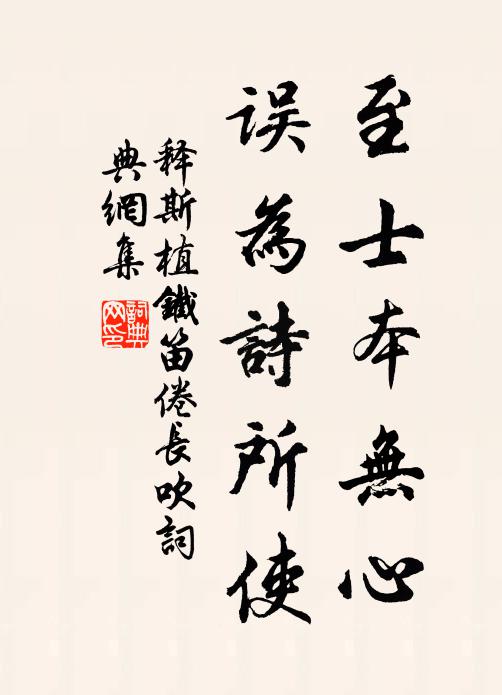 至士本無心
误為詩所使
释斯植鐵笛倦長吹詞
典網集
詞典网印